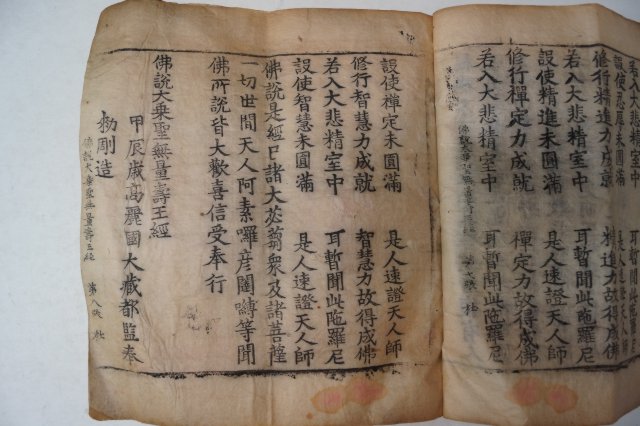 若入大悲精室中　耳暫聞此陁羅尼
設使忍辱未圓滿　是人速證天人師
修行精進力成就　精進力故得成佛
若入大悲精室中　耳暫聞此陁羅尼
設使精進未圓滿　是人速證天人師
修行禪定力成就　禪定力故得成佛
若入大悲精室中　耳暫聞此陁羅尼
佛說大乘聖無量壽王經　第七張　社
設使禪定未圓滿　是人速證天人師
修行智慧力成就　智慧力故得成佛
若入大悲精室中　耳暫聞此陁羅尼
設使智慧未圓滿　是人速證天人師
佛說是經已諸大苾蒭衆及諸菩薩
一切世間天人阿素囉彦闥嚩等聞
佛所說皆大歡喜信受奉行
佛說大乘聖無量壽王經
甲辰歲高麗國大藏都監奉
勑彫造
佛說大乘聖無量壽王經　第八張　社